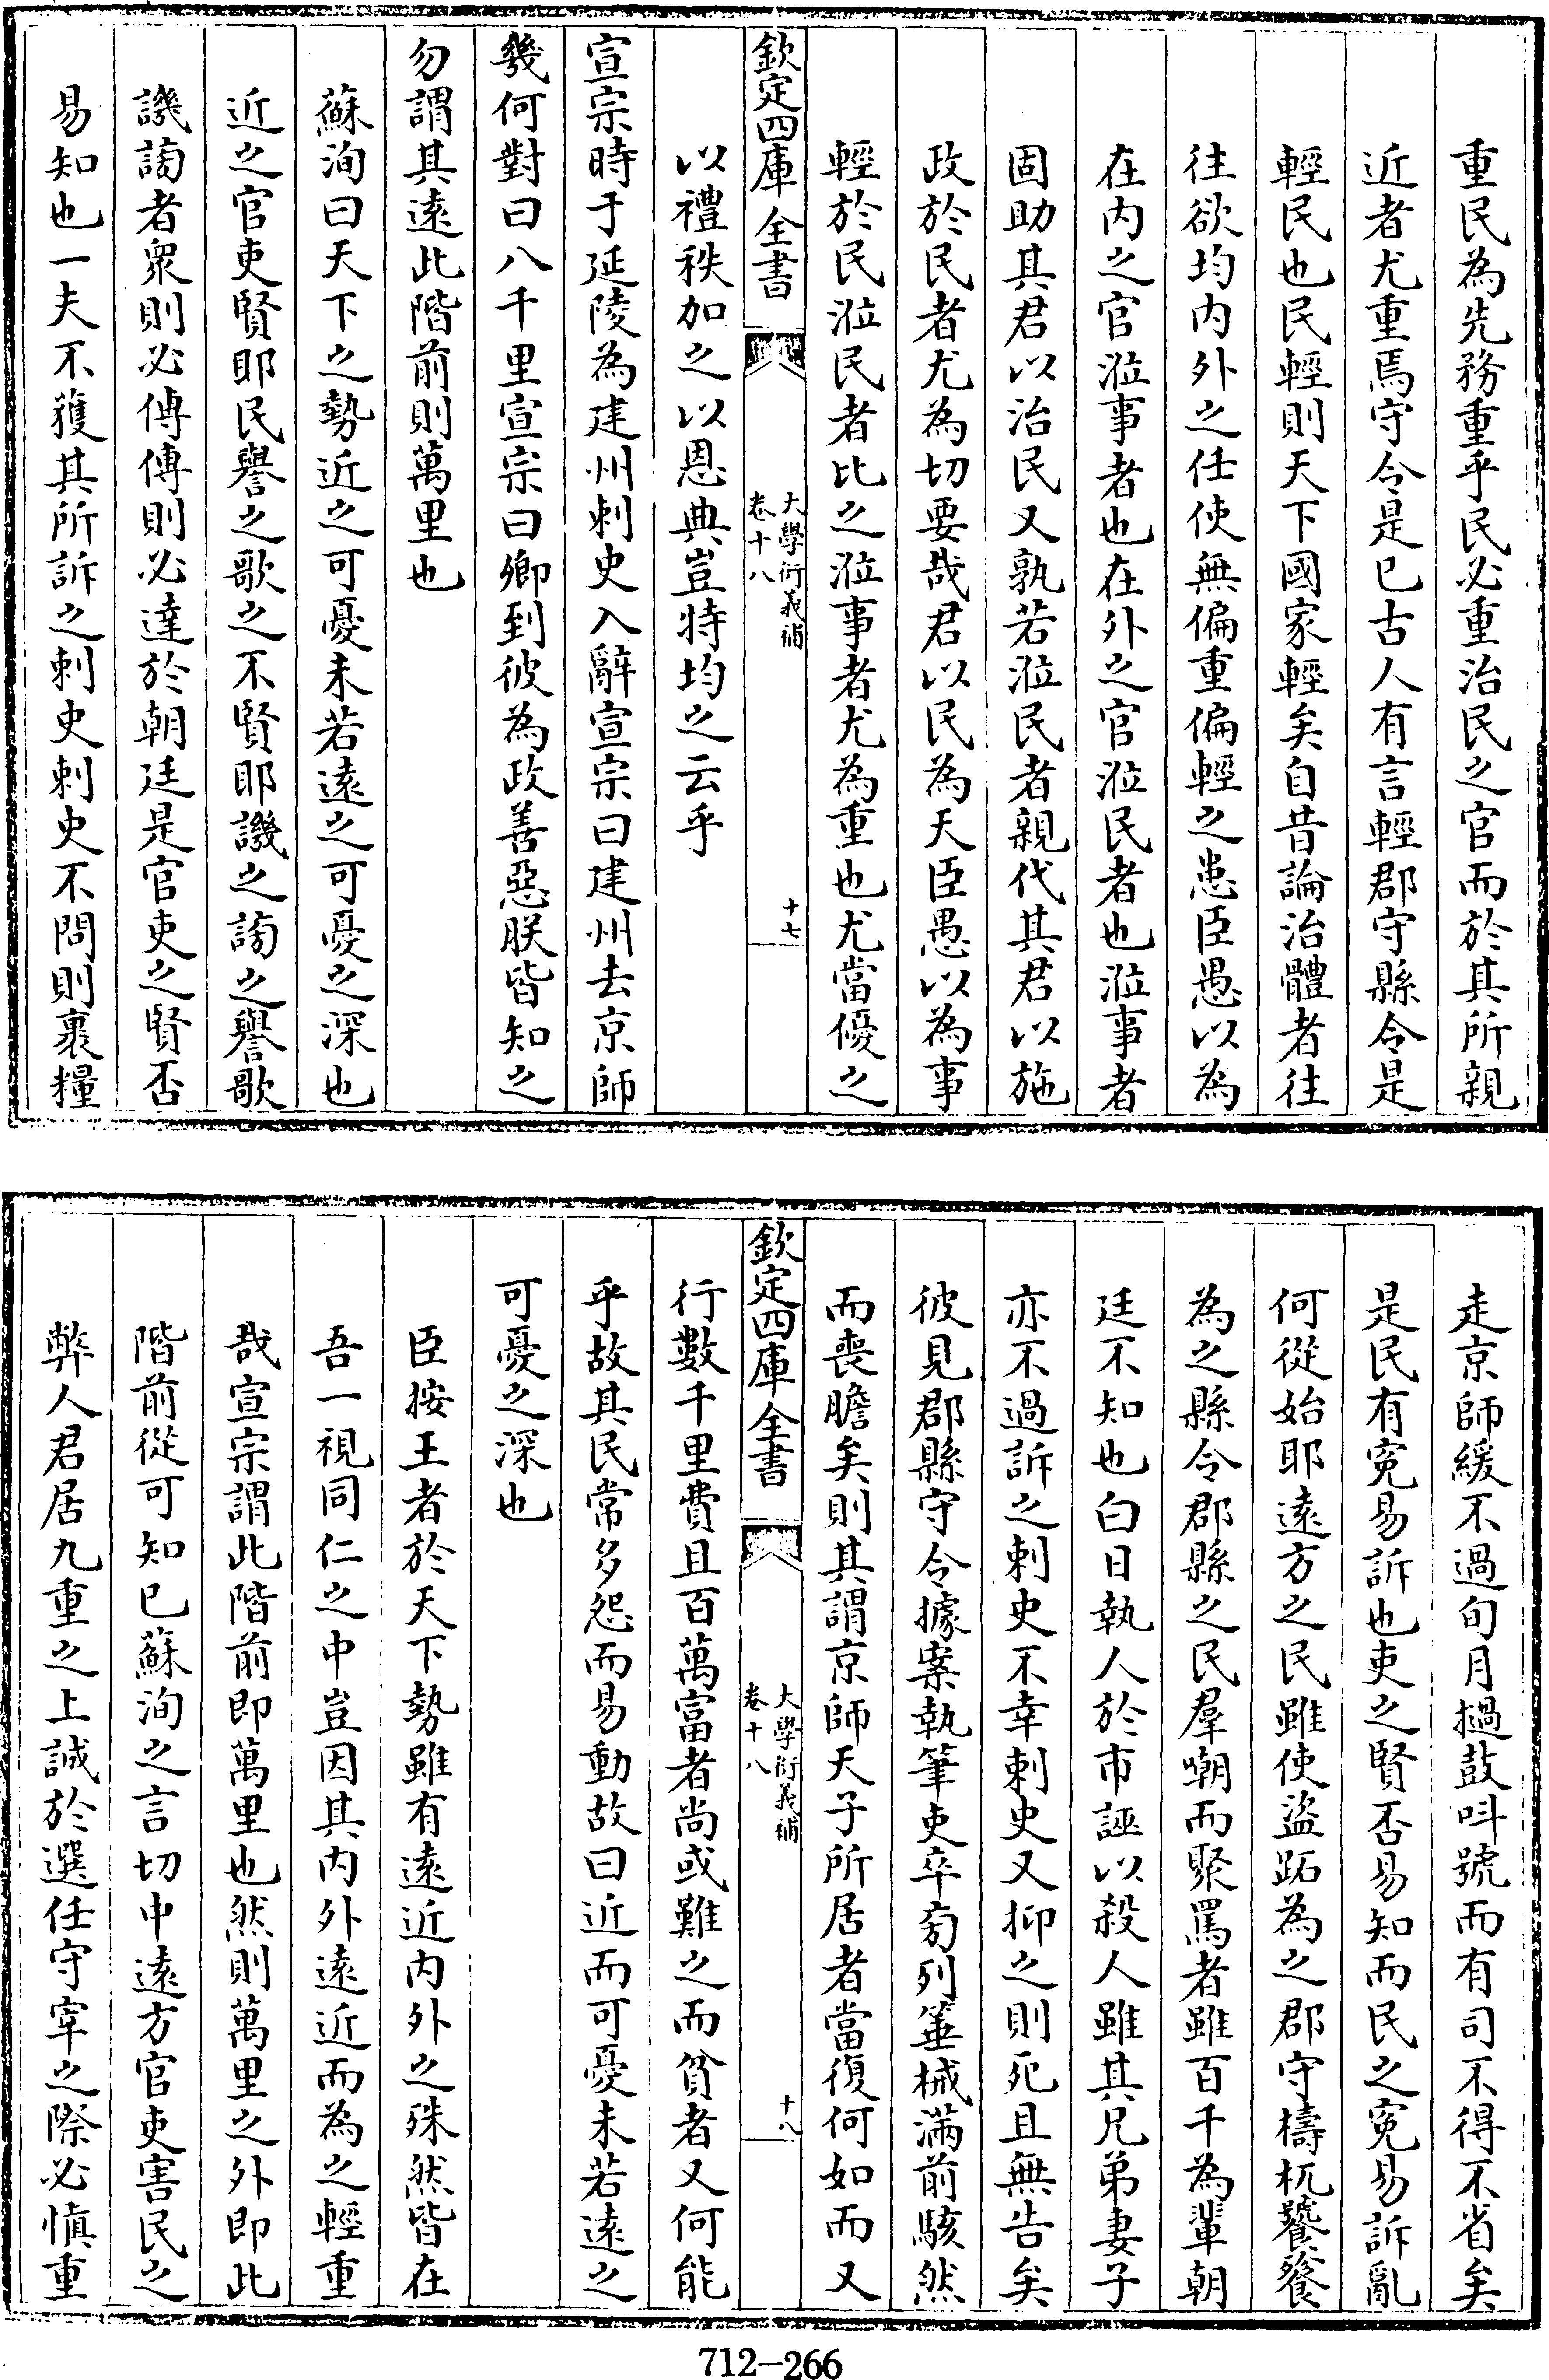 重民為先務重乎民必重治民之官而於其所親
近者尤重焉守令是已古人有言輕郡守縣令是
輕民也民輕則天下國家輕矣自昔論治體者往
往欲均内外之任使無偏重偏輕之患臣愚以為
在内之官涖事者也在外之官涖民者也涖事者
固助其君以治民又孰若涖民者親代其君以施
政於民者尤為切要哉君以民為天臣愚以為事
輕於民涖民者比之涖事者尤為重也尤當優之
欽定四庫全書
大學衍義補
卷十八
十七
以禮秩加之以恩典豈特均之云乎
宣宗時于延陵為建州刺史入辭宣宗曰建州去京師
幾何對曰八千里宣宗曰卿到彼為政善惡朕皆知之
勿謂其遠此階前則萬里也
蘇洵曰天下之勢近之可憂未若遠之可憂之深也
近之官吏賢耶民譽之歌之不賢耶譏之謗之譽歌
譏謗者衆則必傳傳則必達於朝廷是官吏之賢否
易知也一夫不獲其所訴之刺史刺史不問則裹糧
走京師緩不過旬月撾鼓呌號而有司不得不省矣
是民有寃易訴也吏之賢否易知而民之寃易訴亂
何從始耶遠方之民雖使盜跖為之郡守檮杌饕餮
為之縣令郡縣之民羣嘲而聚罵者雖百千為輩朝
廷不知也白日執人於市誣以殺人雖其兄弟妻子
亦不過訴之刺史不幸刺史又抑之則死且無告矣
彼見郡縣守令據案執筆吏卒旁列箠械滿前駭然
而喪膽矣則其謂京師天子所居者當復何如而又
欽定四庫全書
大學衍義補
卷十八
十八
行數千里費且百萬富者尚或難之而貧者又何能
乎故其民常多怨而易動故曰近而可憂未若遠之
可憂之深也
臣按王者於天下勢雖有遠近内外之殊然皆在
吾一視同仁之中豈因其内外遠近而為之輕重
哉宣宗謂此階前即萬里也然則萬里之外即此
階前從可知已蘇洵之言切中遠方官吏害民之
弊人君居九重之上誠於選任守宰之際必慎重
712-266